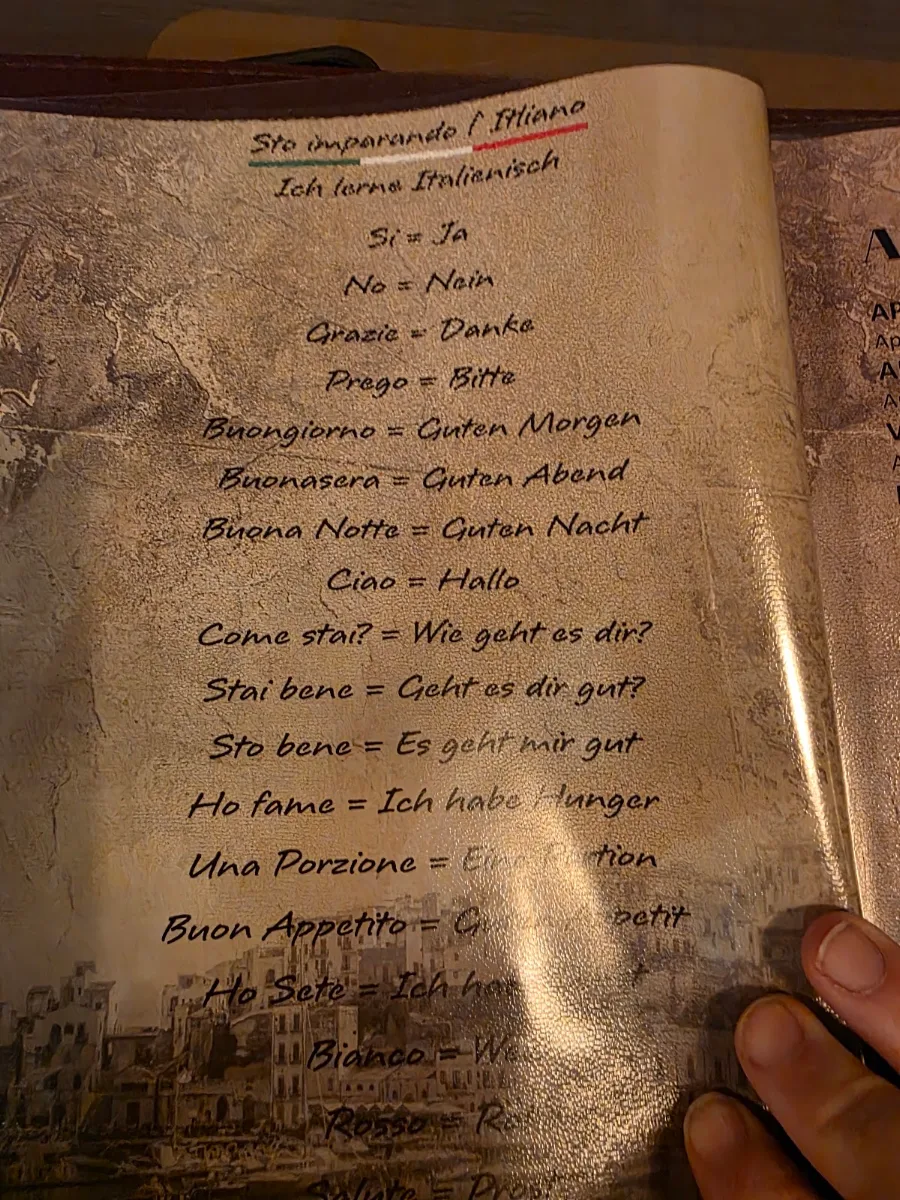 Sto imparando l' Itliano
Ich lerne Italienisch
Si = Ja
No = Nein
Grazie = Danke
Prego = Bitte
Buongiorno = Guten Morgen
Buonasera = Guten Abend
Buona Notte = Guten Nacht
Ciao = Hallo
Come stai? = Wie geht es dir?
Stai bene = Geht es dir gut?
Sto bene = Es geht mir gut
Ho fame = Ich habe Hunger
Una Porzione = Eine Portion
Buon Appetito =
Ho Sete = Ich
Bianco =
Rosso =
Salute = Prost